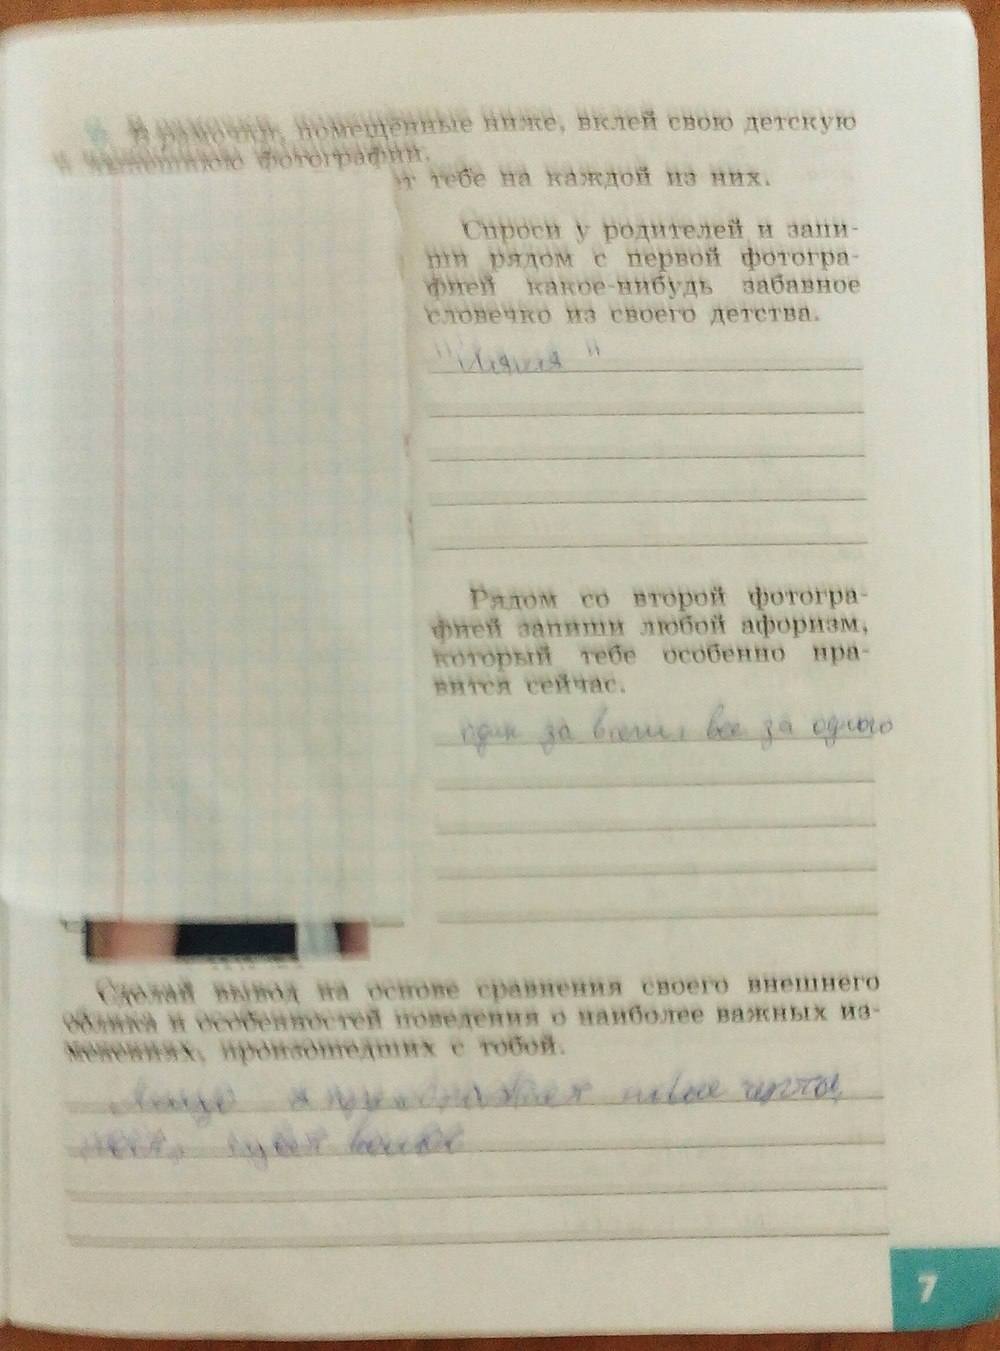 В рамочки, помещённые ниже, вклей свою детскую
и нынешнюю фотографии.
тебе на каждой из них.
Спроси у родителей и запи-
ши рядом с первой фотогра-
фией какое-нибудь забавное
словечко из своего детства.
Рядом со второй фотогра-
фией запиши любой афоризм,
который тебе особенно нра-
вится сейчас.
один за всех, все за одного
Сделай вывод на основе сравнения своего внешнего
облика и особенностей поведения о наиболее важных из-
менениях, произошедших с тобой.
новые черты,
7